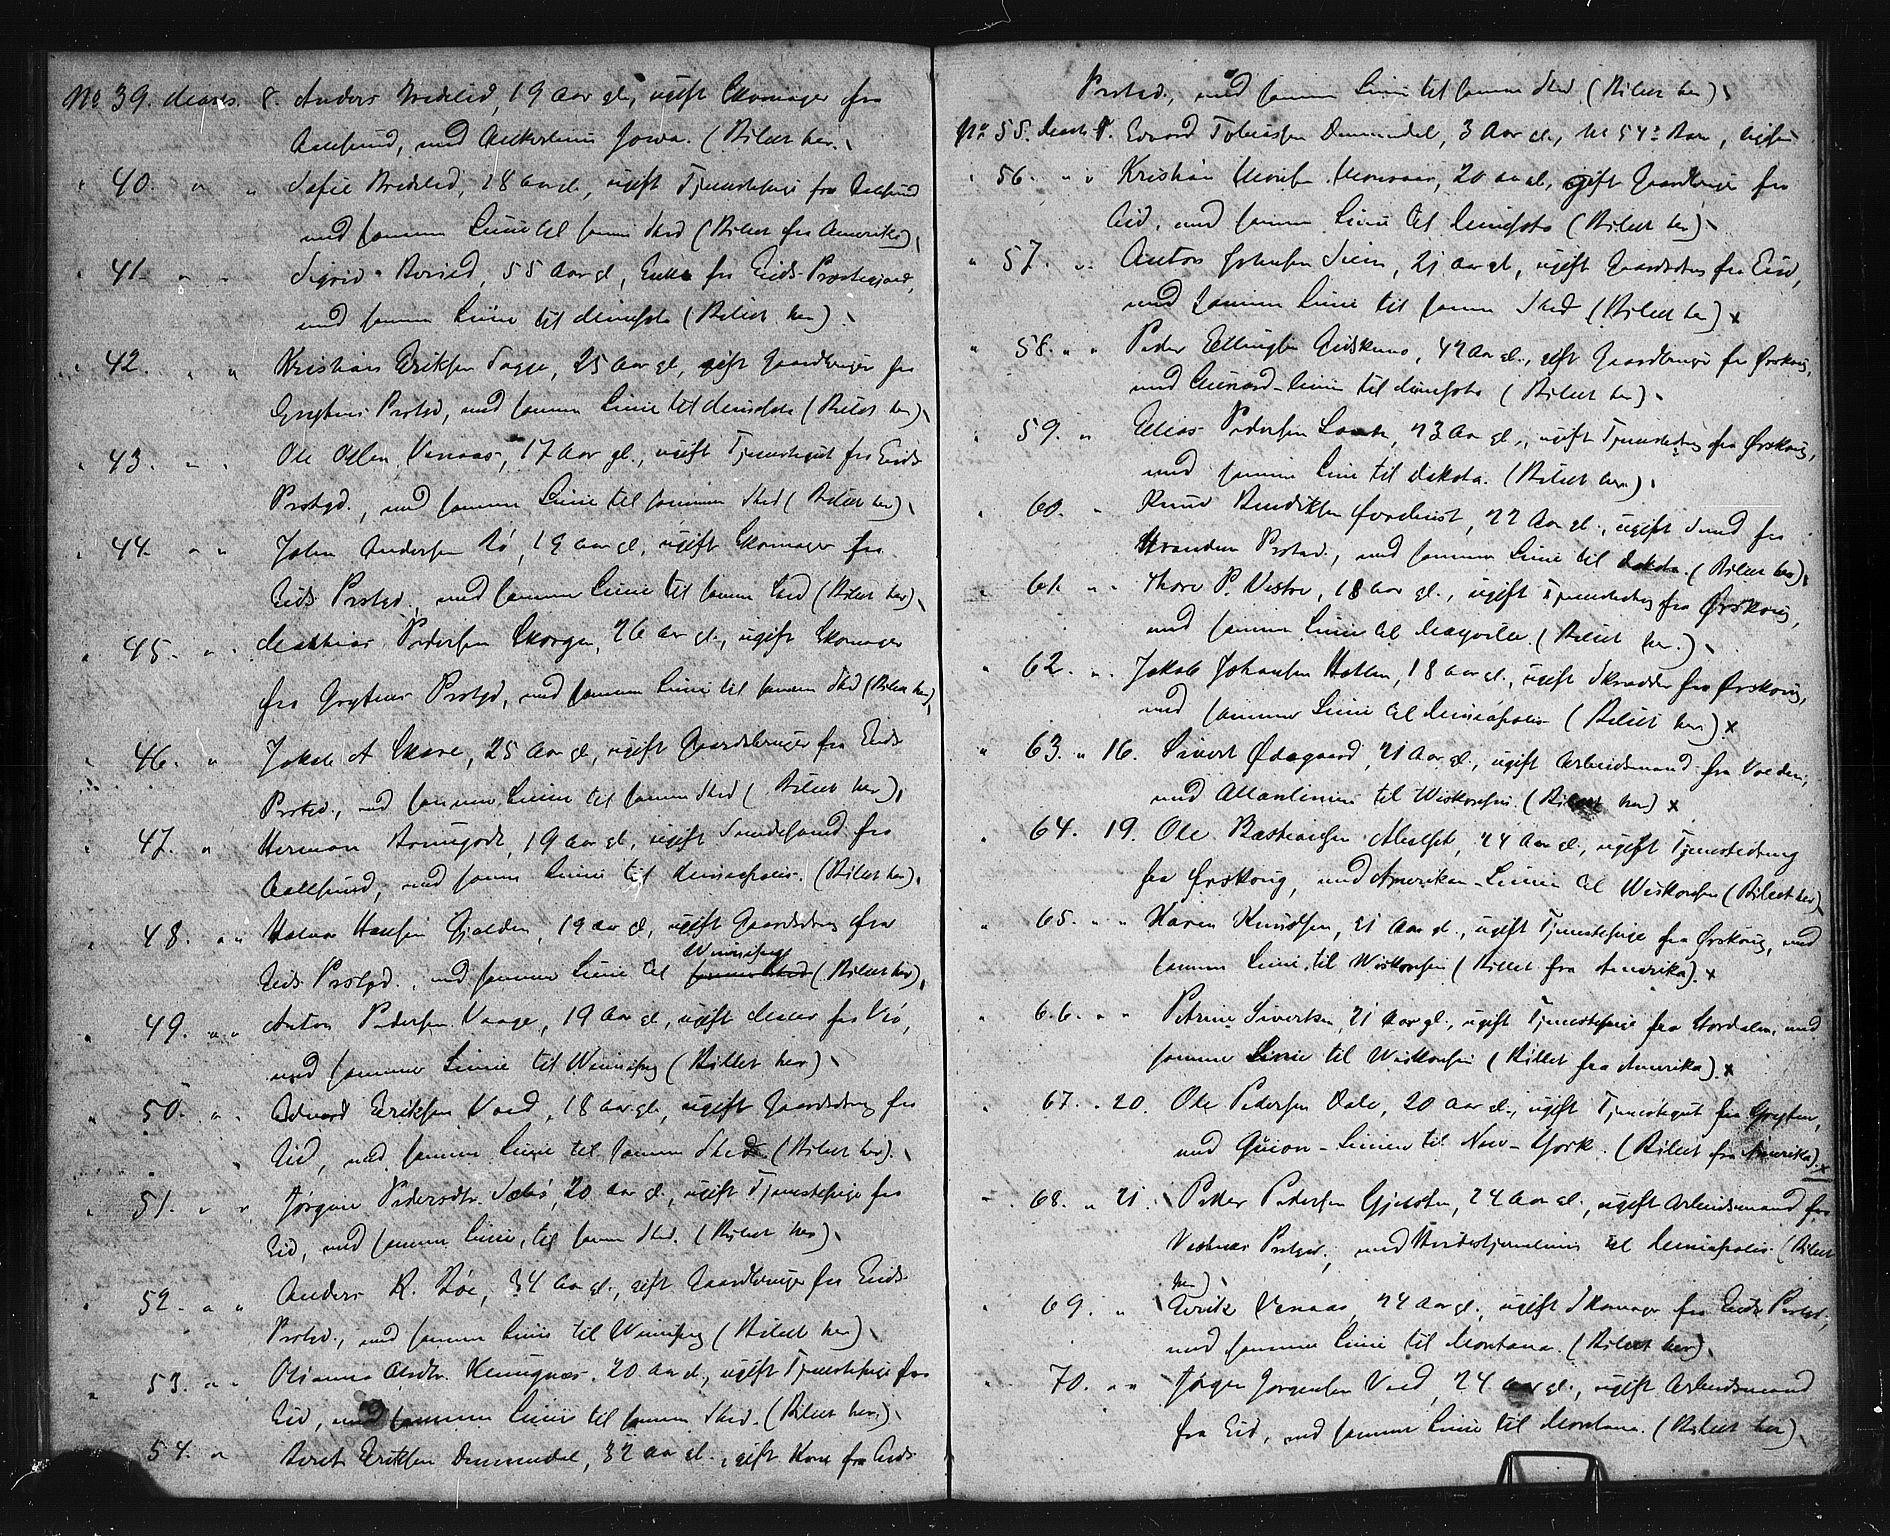 No 39. Marts 8. Anders Bredelid, 19 Aar gl., ugift Skomager fra
Aalesund, med Ankerlinie Jowa. (Billet her).
" 40. " " Sofie Bredelid, 18 Aar gl., ugift Tjenestepige fra Aalesund
med samme Linie til samme Sted (Billet fra Amerika).
" 41. " " Sigrid 55 Aar gl., Enke fra Eids Præstegjæld,
med samme Linie til Minesota (Billet her).
" 42. " " Kristian Eriksen 25 Aar gl., gift Gaardbruger fra
Gryten Prstgd, med samme Linie til Minesota (Billet her).
" 43. " " Ole Olsen Venaas, 17 Aar gl., ugift Tjenestegut fra Eids
Prstgd., med samme Linie til samme Sted (Billet her).
" 44. " " John Andersen Bø, 19 Aar gl., ugift Skomager fra
Eids Prstgd., med samme Linie til samme Sted (Billet her).
" 45. " " Mathias Pedersen Skorgen, 26 Aar gl., ugift Skomager
fra Grytens Prstgd, med samme Linie til samme Sted (Billet her).
" 46. " Jakob A Skare, 25 Aar gl., ugift Gaardsbruger fra Eids
Prstgd., med samme Linie til samme Sted (Billet her).
" 47. " Herman 19 Aar gl., ugift fra
Aalesund, med samme Linie til Mineapolis. (Billet her).
" 48. " " Halvor Hansen Gjelden, 19 Aar gl., ugift Gaardsdreng fra
Winnipeg
Eids Prstgd., med samme Linie til samme Sted (Billet her).
" 49. " " Anton Pedersen Vaage, 19 Aar gl., ugift fra Vø,
med samme Linie til Winnipeg (Billet her).
" 50. " " Edvard Eriksen Voed, 18 Aar gl., ugift Gaardsdreng fra
Eid, med samme Linie til samme Sted (Billet her).
" 51. " " Jørgine Pedersdtr. Sæbø, 20 Aar gl., ugift Tjenestepige fra
Eid, med samme Linie, til samme Sted. (Billet her).
" 52. " " Anders R. Bøe, 34 Aar gl., gift Gaardbruger fra Eids
Prstgd., med samme Linie til Winnipeg (Billet her).
" 53. " " Olianna Olsdtr. 20 Aar gl., ugift Tjenestepige fra
Eid, med samme Linie til samme Sted. (Billet her).
54. " Berit Eriksen 32 Aar gl., gift Kone fra Eids
Prstgd., med samme Linie til samme Sted (Billet her).
No 55. Marts 8. Edvard Tobiassen 3 Aar gl., No 54's Barn,
" 56. " " Kristian 20 Aar gl., gift Gaardbruger fra
Eid, med samme Linie til Minesota (Billet her).
" 57. " " Anton Johnsen 21 Aar gl., ugift Gaardsdreng fra Eid,
med samme Linie til samme Sted (Billet her) x
" 58. " " Peder Ellingsen 42 Aar gl., gift Gaardbruger fra Ørskoug,
med Cunard-Linie til Minesota (Billet her).
" 59. " Elias Pedersen 23 Aar gl., ugift Tjenestedreng fra Ørskoug,
med samme Linie til Dakota. (Billet her).
" 60. " Knud Bendiksen 22 Aar gl., ugift Smed fra
Stranden Prstgd., med samme Linie til Dakota. (Billet her).
" 61. " " Thore P. Vestre, 18 Aar gl., ugift Tjenestedreng fra Ørskoug,
med samme Linie til Mayville. (Billet her.)
" 62. " " Jakob Johansen Hatlen, 18 Aar gl., ugift Skrædder fra Ørskoug,
med samme Linie til Mineapolis (Billet her). x
" 63. " 16. Sivert Ødegaard, 21 Aar gl., ugift Arbeidsmand fra Volden,
med Allanlinien til Wiskonsin. (Billet her) x
" 64. 19. Ole Bastiansen 24 Aar gl., ugift Tjenestedreng
fra Ørskoug, med Amerikan-Linie til Wiskonsin (Billet her).
" 65. " " Karen Knudsen, 21 Aar gl., ugift Tjenestepige fra Ørskoug, med
samme Linie, til Wiskonsin (Billet fra Amerika). x
" 66. " " Petrine Sivertsen, 21 Aar gl., ugift Tjenestepige fra Stordalen, med
samme Linie til Wiskonsin (Billet fra Amerika). x
" 67. " 20. Ole Pedersen Dale, 20 Aar gl., ugift Tjenestegut fra Gryten,
med Guion-Linien til New-York. (Billet fra Amerika). x
" 68. " 21. Petter Pedersen Gjelsten, 24 Aar gl., ugift Arbeidsmand fra
Vestnæs Prstgd., med Hvidestjernelinien til Mineapolis. (Billet
her).
" 69. " Erik Venaas, 24 Aar gl., ugift Skomager fra Eids Prstgd.,
med samme Linie til Montana. (Billet her).
" 70. " " Jørgen Jørgensen Voed, 24 Aar gl., ugift Arbeidsmand
fra Eid, med samme Linie til Montana. (Billet her)